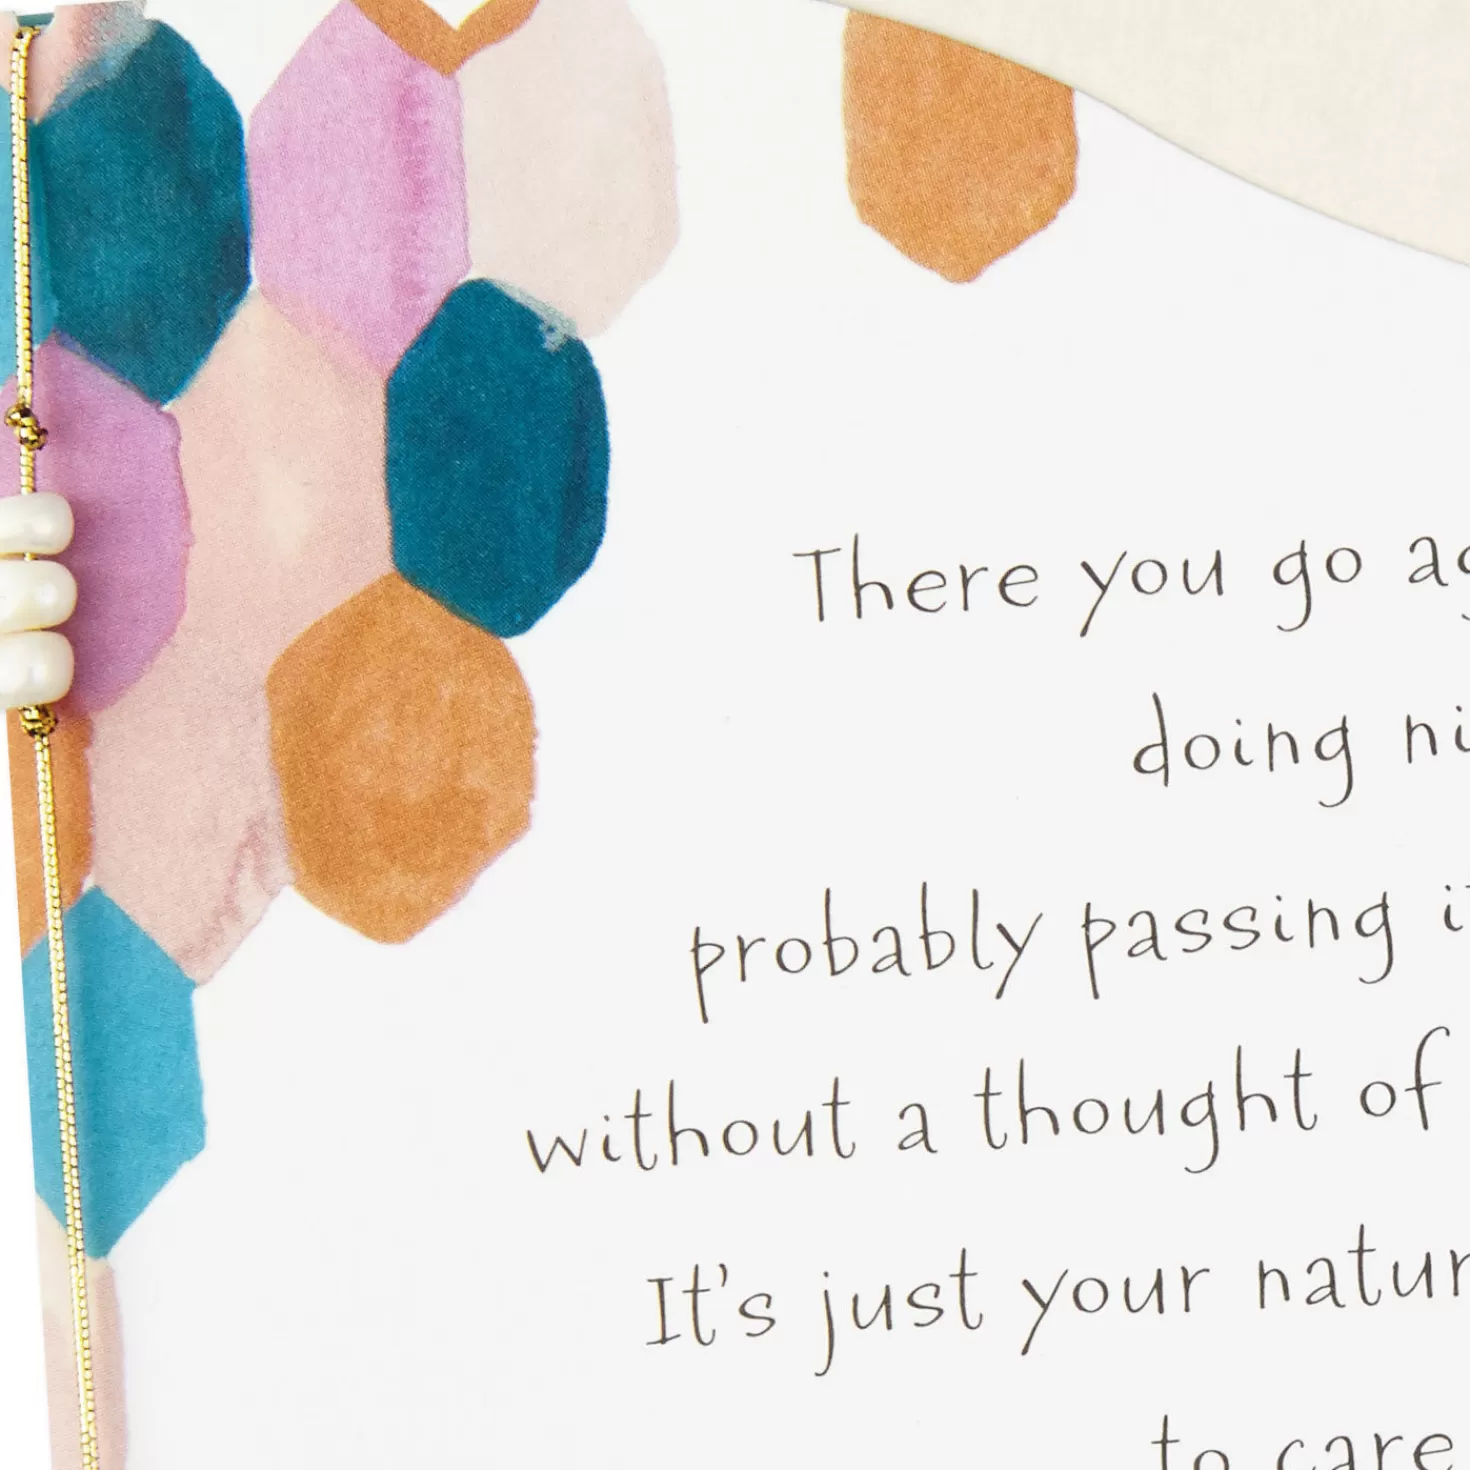 There you go ag
doing ni
probably passing it
without a thought of
It's just your natur
to care